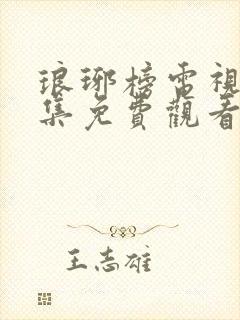 琅琊榜電視
集免費觀看
王志雄